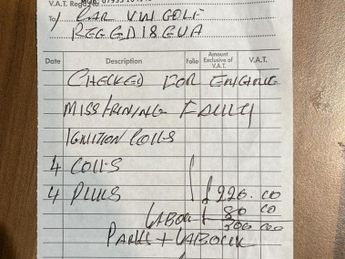 V.A.T. Reg
To CAR VW GOLF
REG ED18EUA
Date Description Folio Amount Exclusive of V.A.T. V.A.T.
CHECKED FOR ENGINE
MISS FIRING FAULTY
IGNITION COILS
4 COILS
4 PLUGS £220.00
LABOR £ 80 00
PARTS + LABOUR 300 00